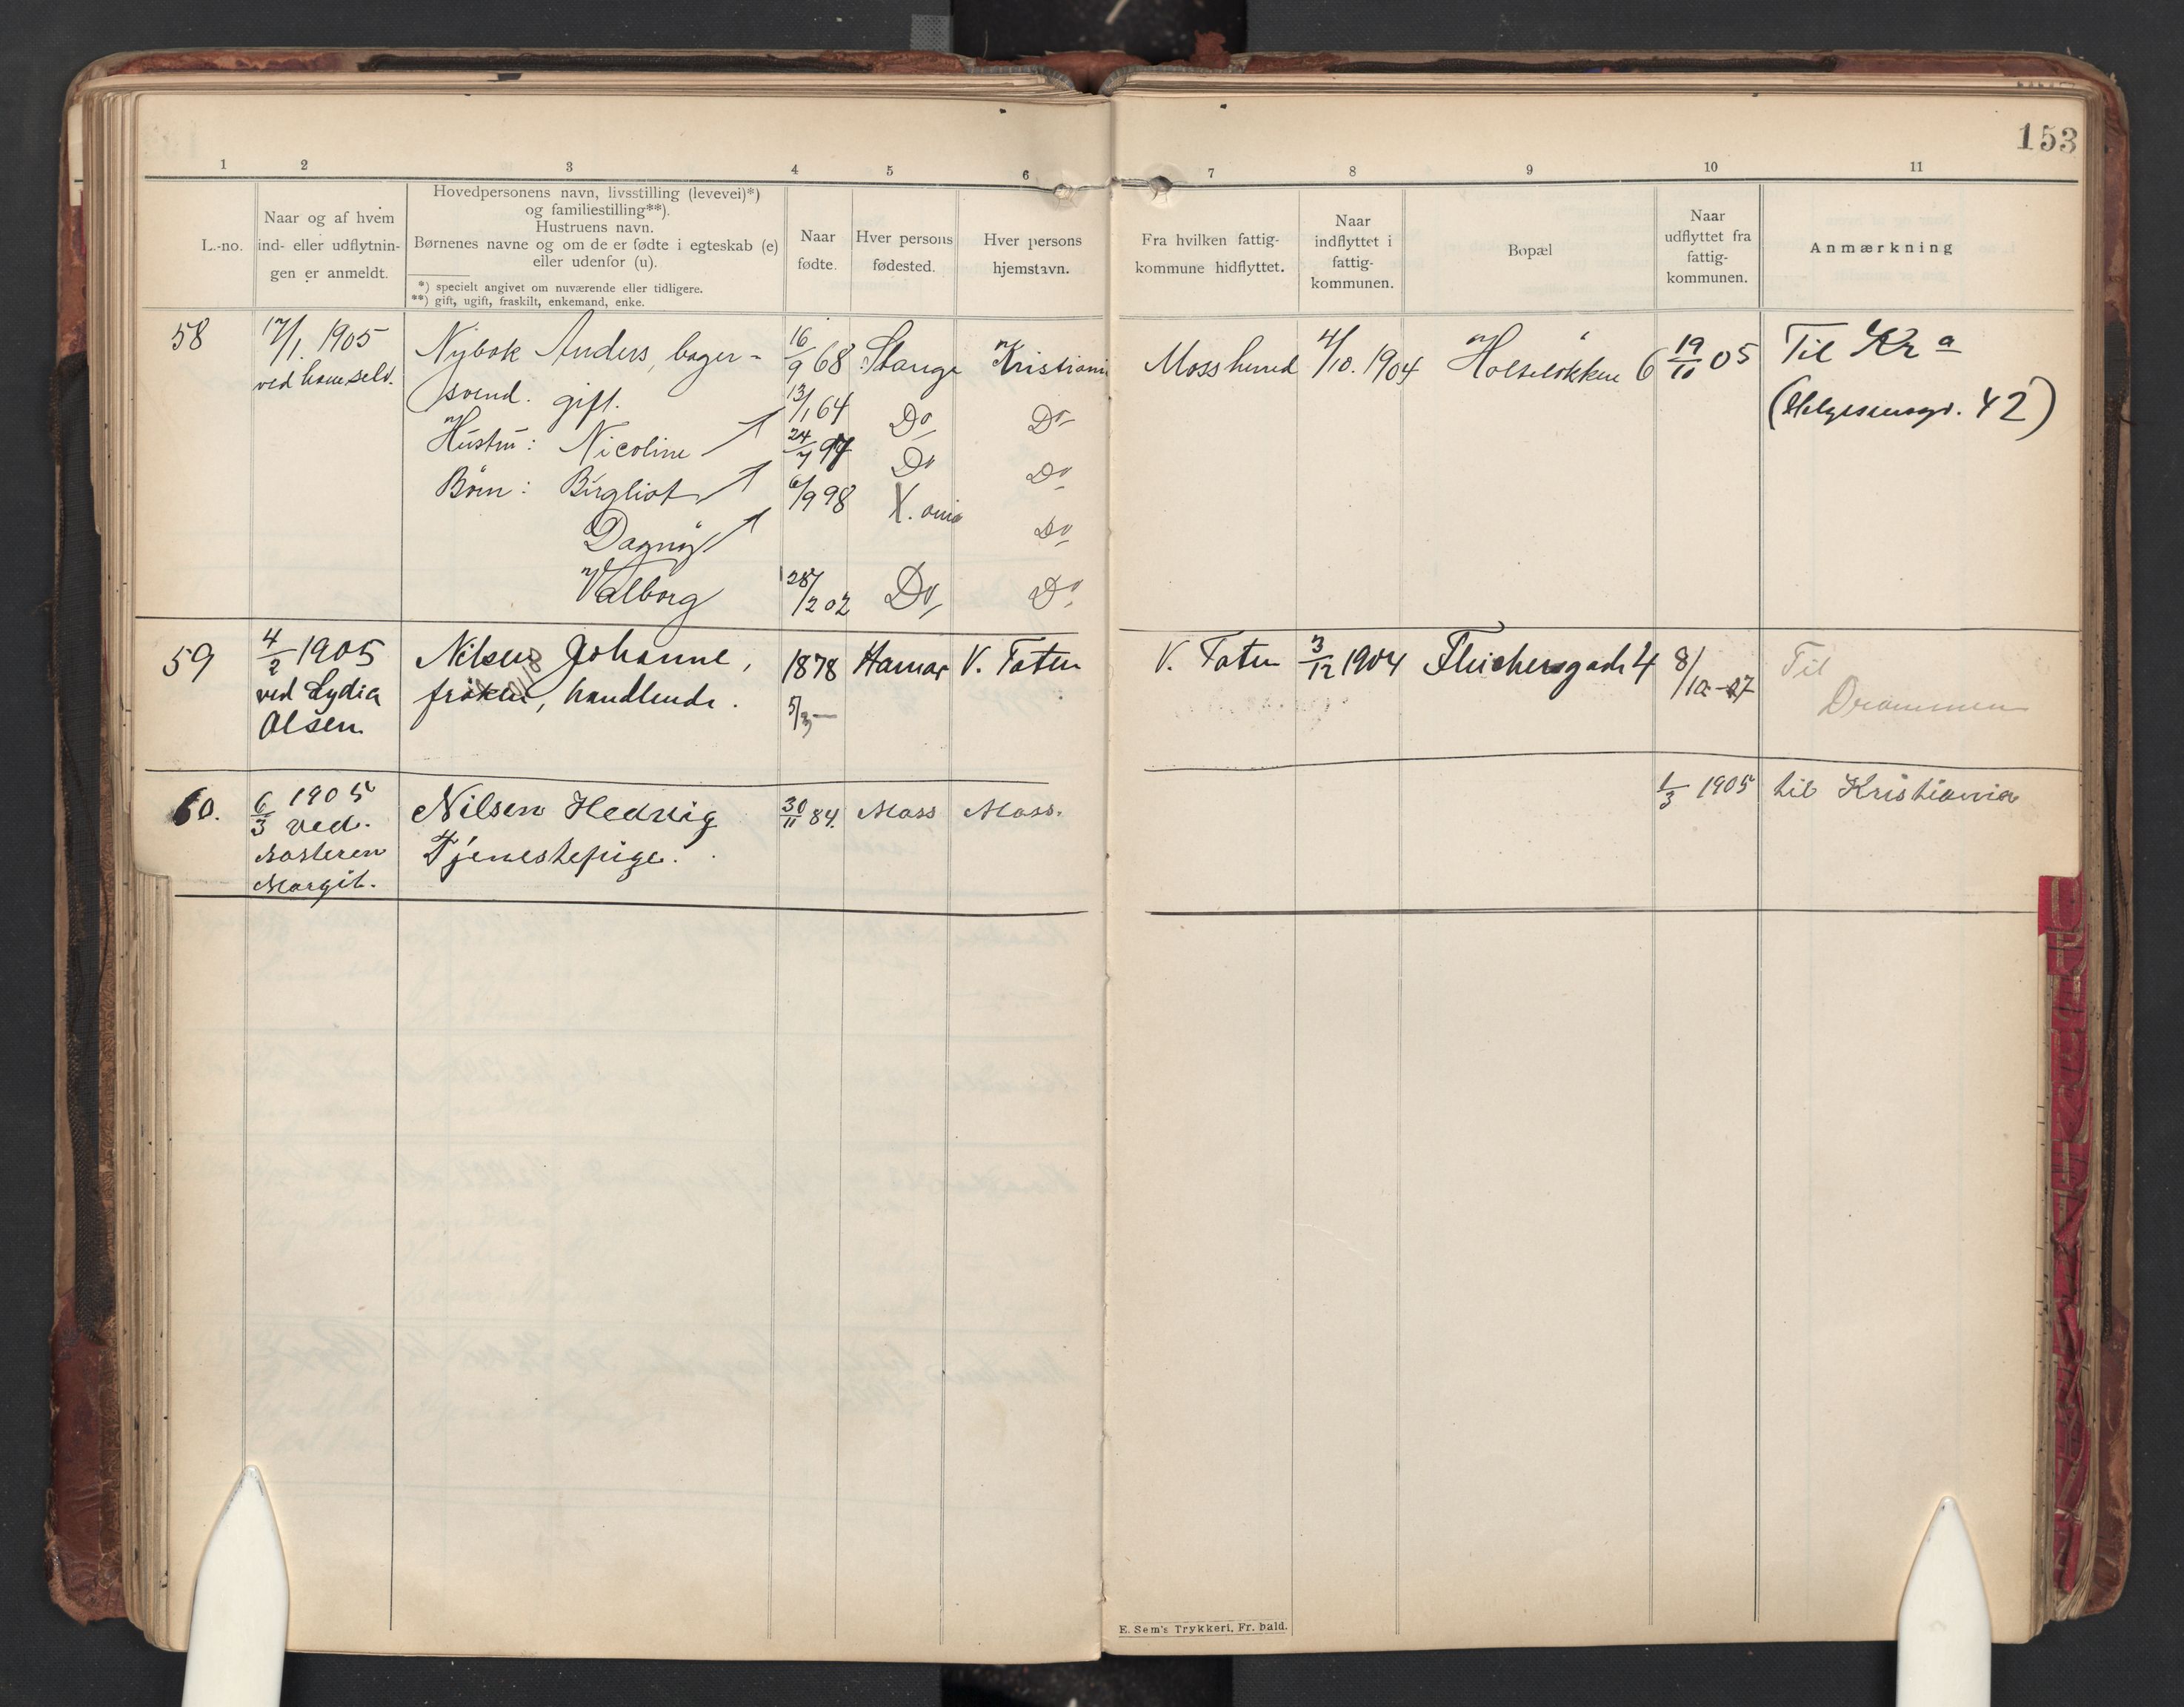 153
1 2 3 4 5 6 7 8 9 10 11
L.-no.
Naar og af hvem
ind- eller udflytnin-
gen er anmeldt.
Hovedpersonens navn, livsstilling (levevei)*)
og familiestilling**).
Hustruens navn.
Børnenes navne og om de er fødte i egteskab (e)
eller udenfor (u).
*) specielt angivet om nuværende eller tidligere.
**) gift, ugift, fraskilt, enkemand, enke.
Naar
fødte.
Hver persons
fødested.
Hver persons
hjemstavn.
Fra hvilken fattig-
kommune hidflyttet.
Naar
indflyttet i
fattig-
kommunen.
Bopæl
Naar
udflyttet fra
fattig-
kommunen.
Anmærkning
58
17/1. 1905
ved ham selv.
Nybak Anders, bager-
svend. gift.
Hustru: Nicoline
Børn: Birgliot
Dagny
Valborg
16/9 68
13/1 64
24/7 97
6/9 98
28/2 02
Stange
Do
Do
X.ania
Do
Kristiania
Do
Do
Do
Do
Moss herred
4/10. 1904
Holseløkken 6
19/10 05
Til Kra
(Helgesensgd. 42)
59
4/2 1905
ved Lydia
Olsen
Nilsen Johanne,
frøken, handlende.
1878
5/3 —
Hamar
V. Toten
V. Toten
3/12 1904
4
8/10-07
Til
Drammen
60.
6/3 1905
ved.
Margit.
Nilsen Hedvig
Tjenestepige.
30/11 84.
Moss
Moss.
1/3 1905
til Kristiania
E. Sem's Trykkeri, Fr. hald.